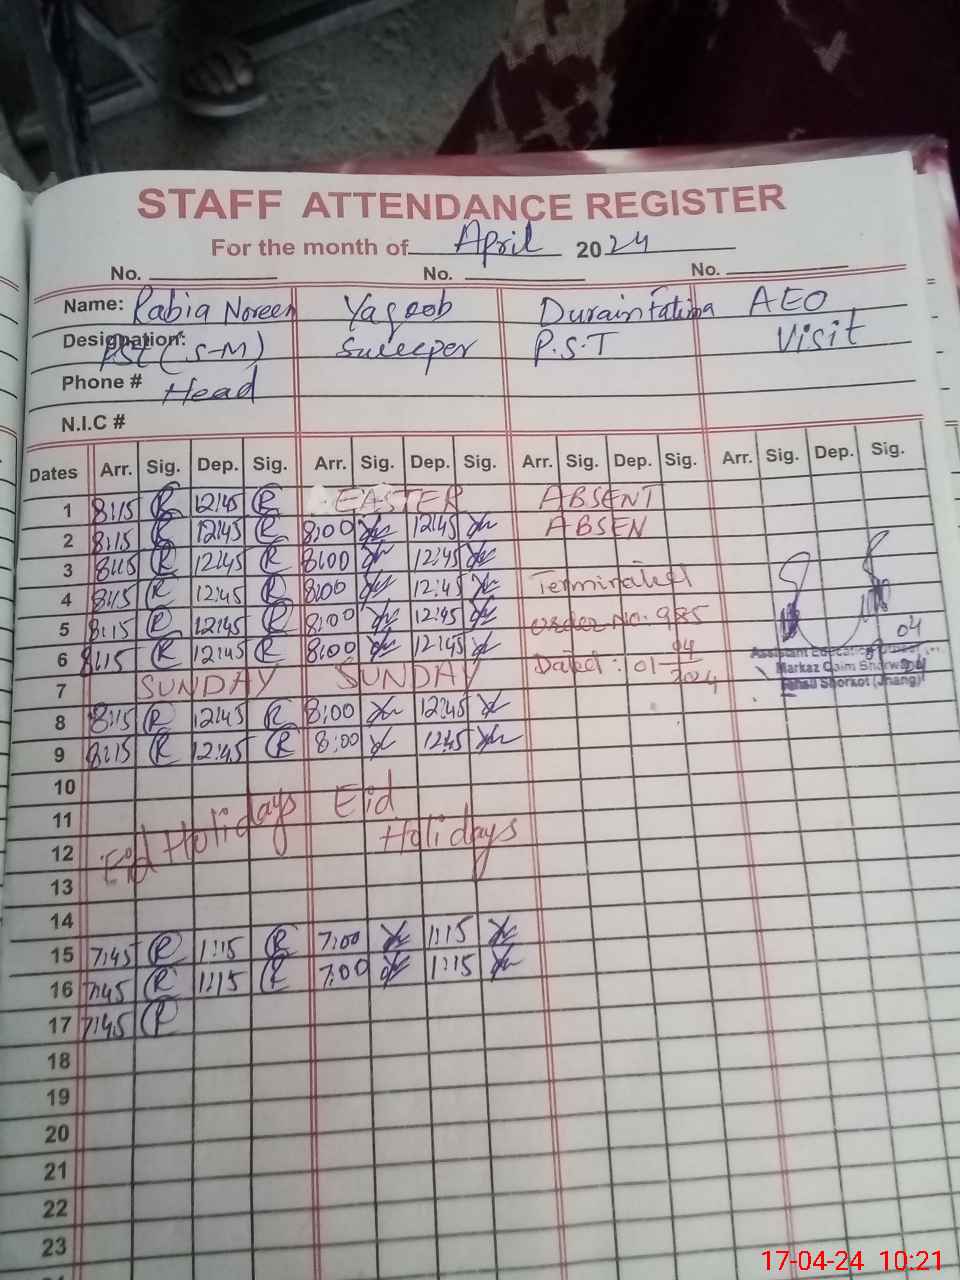 STAFF ATTENDANCE REGISTER
For the month of April 2024
No. No. No.
Name: Rabia Noreen Yaqoob Durain Fatima AEO
Designation: PST (S-M) Sweeper P.S.T Visit
Phone # Head
N.I.C #
Dates Arr. Sig. Dep. Sig. Arr. Sig. Dep. Sig. Arr. Sig. Dep. Sig. Arr. Sig. Dep. Sig.
1 8:15 R 12:45 R EASTER ABSENT
2 8:15 R 12:45 R 8:00 12:45 ABSEN
3 8:15 R 12:45 R 8:00 12:45
4 8:15 R 12:45 R 8:00 12:45 Terminated
5 8:15 R 12:45 R 8:00 12:45 order No. 985
6 8:15 R 12:45 R 8:00 12:45 Dated: 01-04-2024 04
Assistant Education Officer
Markaz Qaim Bharwana
Tehsil Shorkot (Jhang)
7 SUNDAY SUNDAY
8 8:15 R 12:45 R 8:00 12:45
9 8:15 R 12:45 R 8:00 12:45
10
11 Eid Holidays Eid
12 Holidays
13
14
15 7:45 R 1:15 R 7:00 1:15
16 7:45 R 1:15 R 7:00 1:15
17 7:45 R
18
19
20
21
22
23
17-04-24 10:21